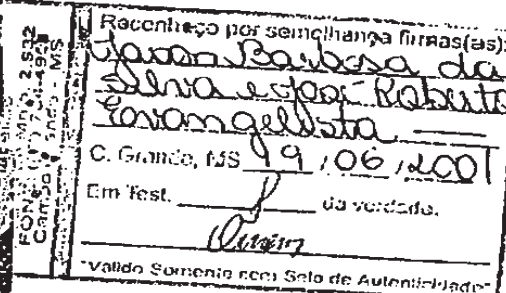 Reconheço por semelhança firmas(as):
Barbosa da
Silva e José Roberto
Evangelista
C. Grande, MS 19 / 06 / 2001
Em Test. da verdade.
"Valido Somente com Selo de Autenticidade"
Campo Grande - MS